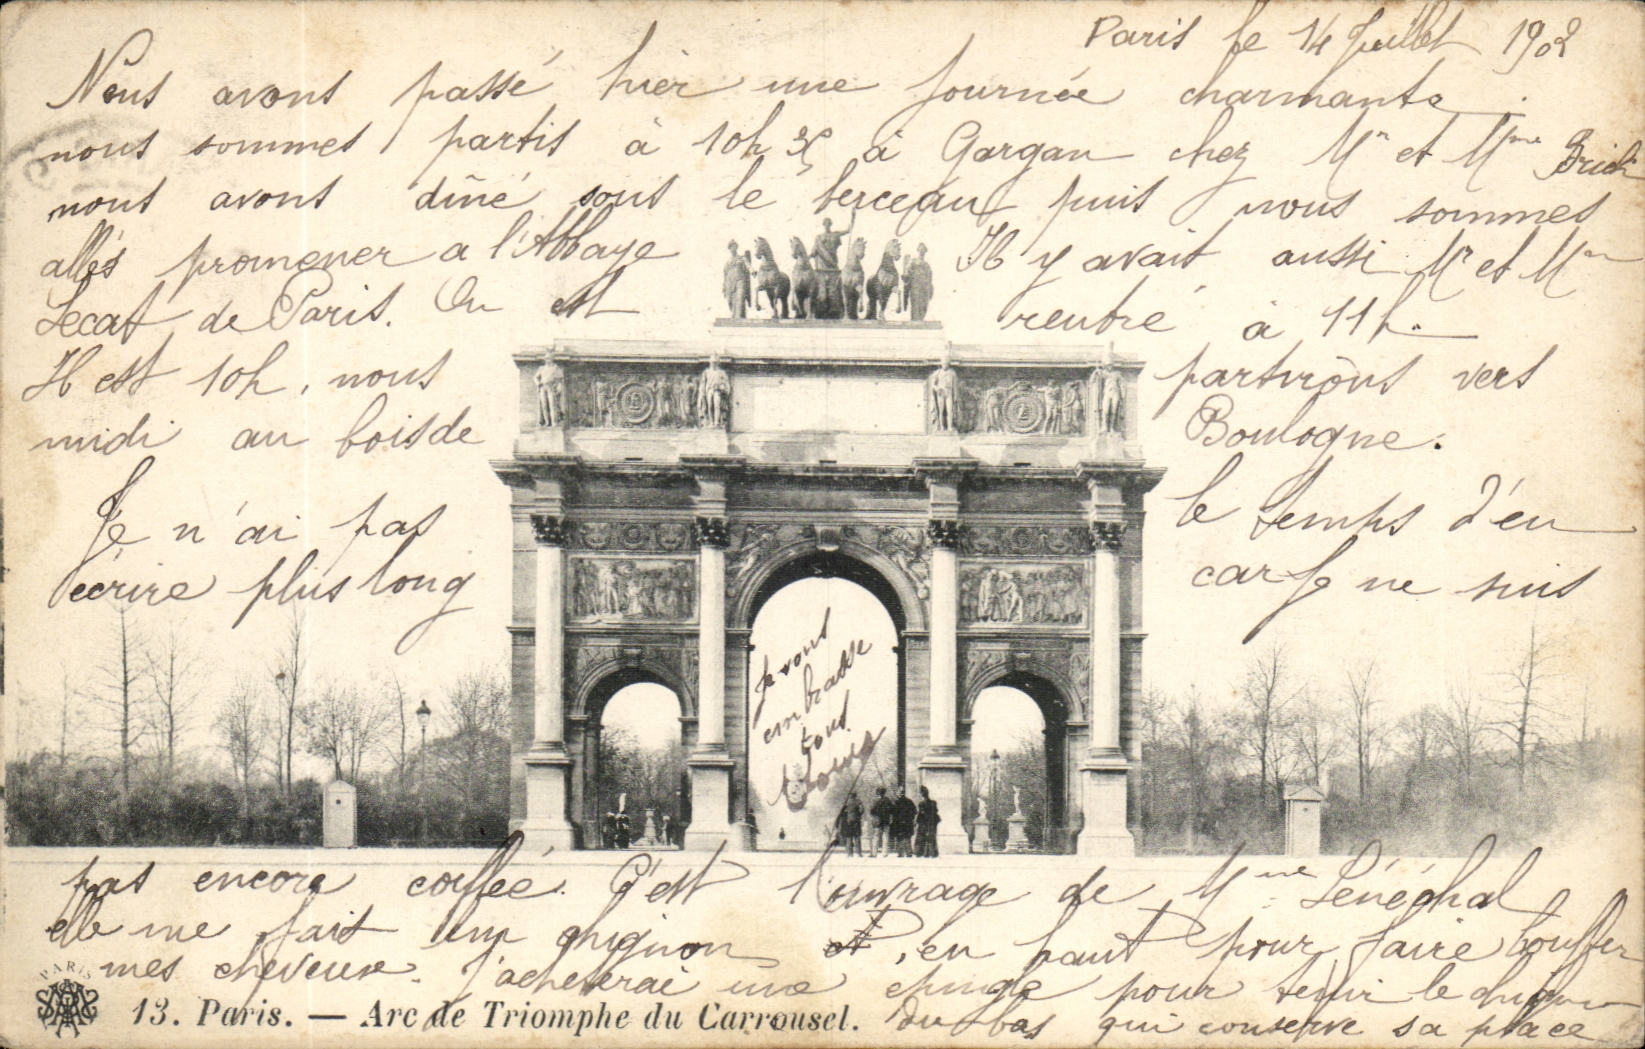 Paris le 14 Juillet 1902
Nous avons passé hier une journée charmante.
nous sommes partis à 10h 3/4 à Gargan chez Mr et Mme
nous avons dîné sous le berceau puis nous sommes
allés promener a l'Abbaye Il y avait aussi Mr et Mme
Lecat de Paris. On est rentré à 11h.
Il est 10h, nous partirons vers
midi au bois de Boulogne.
Je n'ai pas le temps d'en
écrire plus long car je ne suis
pas encore coiffée. C'est l'ouvrage de Mme Sénéchal
elle me fait un chignon , en haut pour faire bouffer
mes cheveux. J'achèterai une epingle pour tenir le chignon
du bas qui conserve sa place
Je vous
embrasse
tous
PARIS
13. Paris. — Arc de Triomphe du Carrousel.